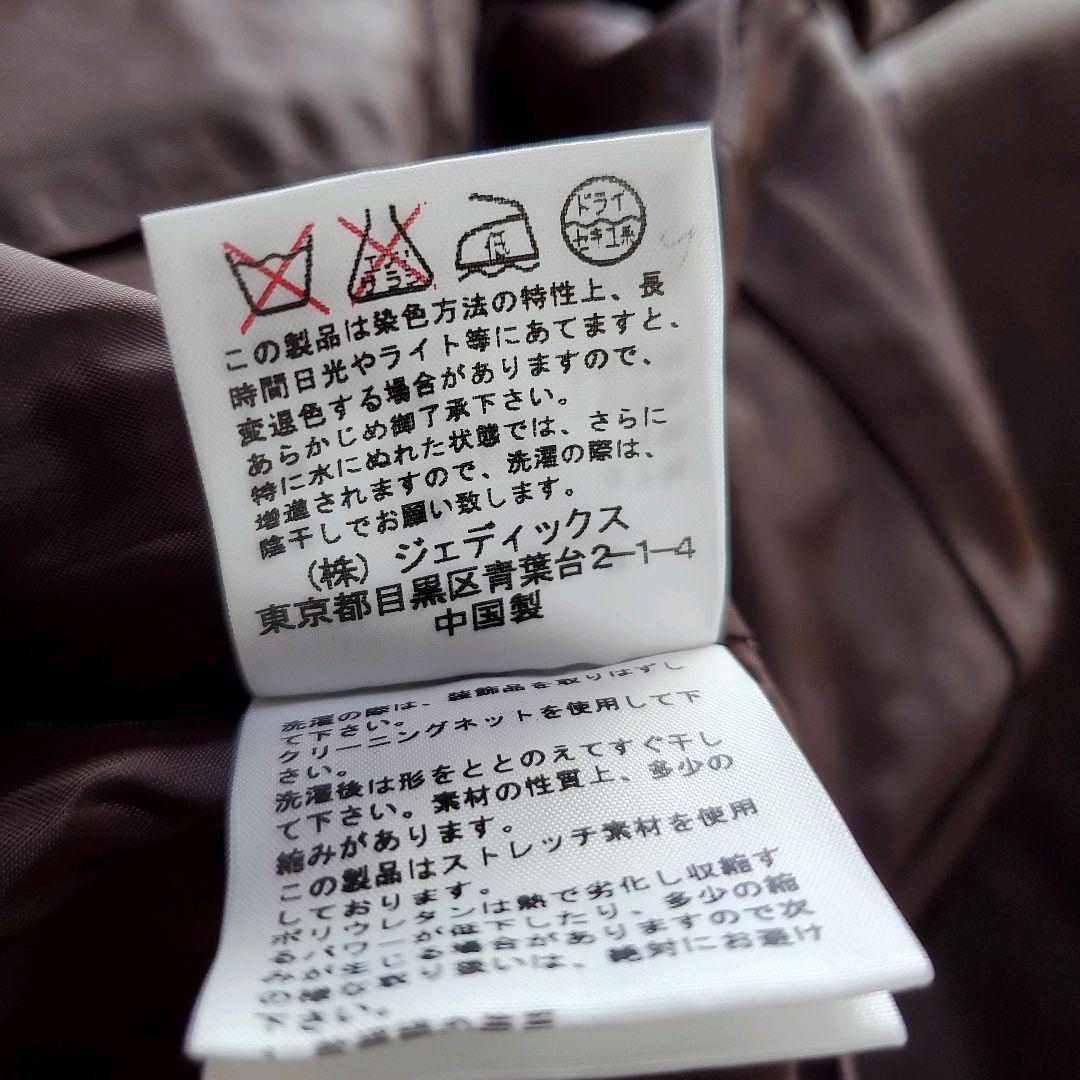 エンソ
サラシ
低
ドライ
セキユ系
この製品は染色方法の特性上、長
時間日光やライト等にあてますと、
変退色する場合がありますので、
あらかじめ御了承下さい。
特に水にぬれた状態では、さらに
増進されますので、洗濯の際は、
陰干しでお願い致します。
(株)ジェディックス
東京都目黒区青葉台2-1-4
中国製
洗濯の際は、装飾品を取りはずし
て下さい。
クリーニングネットを使用して下
さい。
洗濯後は形をととのえてすぐ干し
て下さい。素材の性質上、多少の
縮みがあります。
この製品はストレッチ素材を使用
しております。
ポリウレタンは熱で劣化し収縮す
るパワーが低下したり、多少の縮
みが生じる場合がありますので次
の様な取り扱いは、絶対にお避け
下さい。